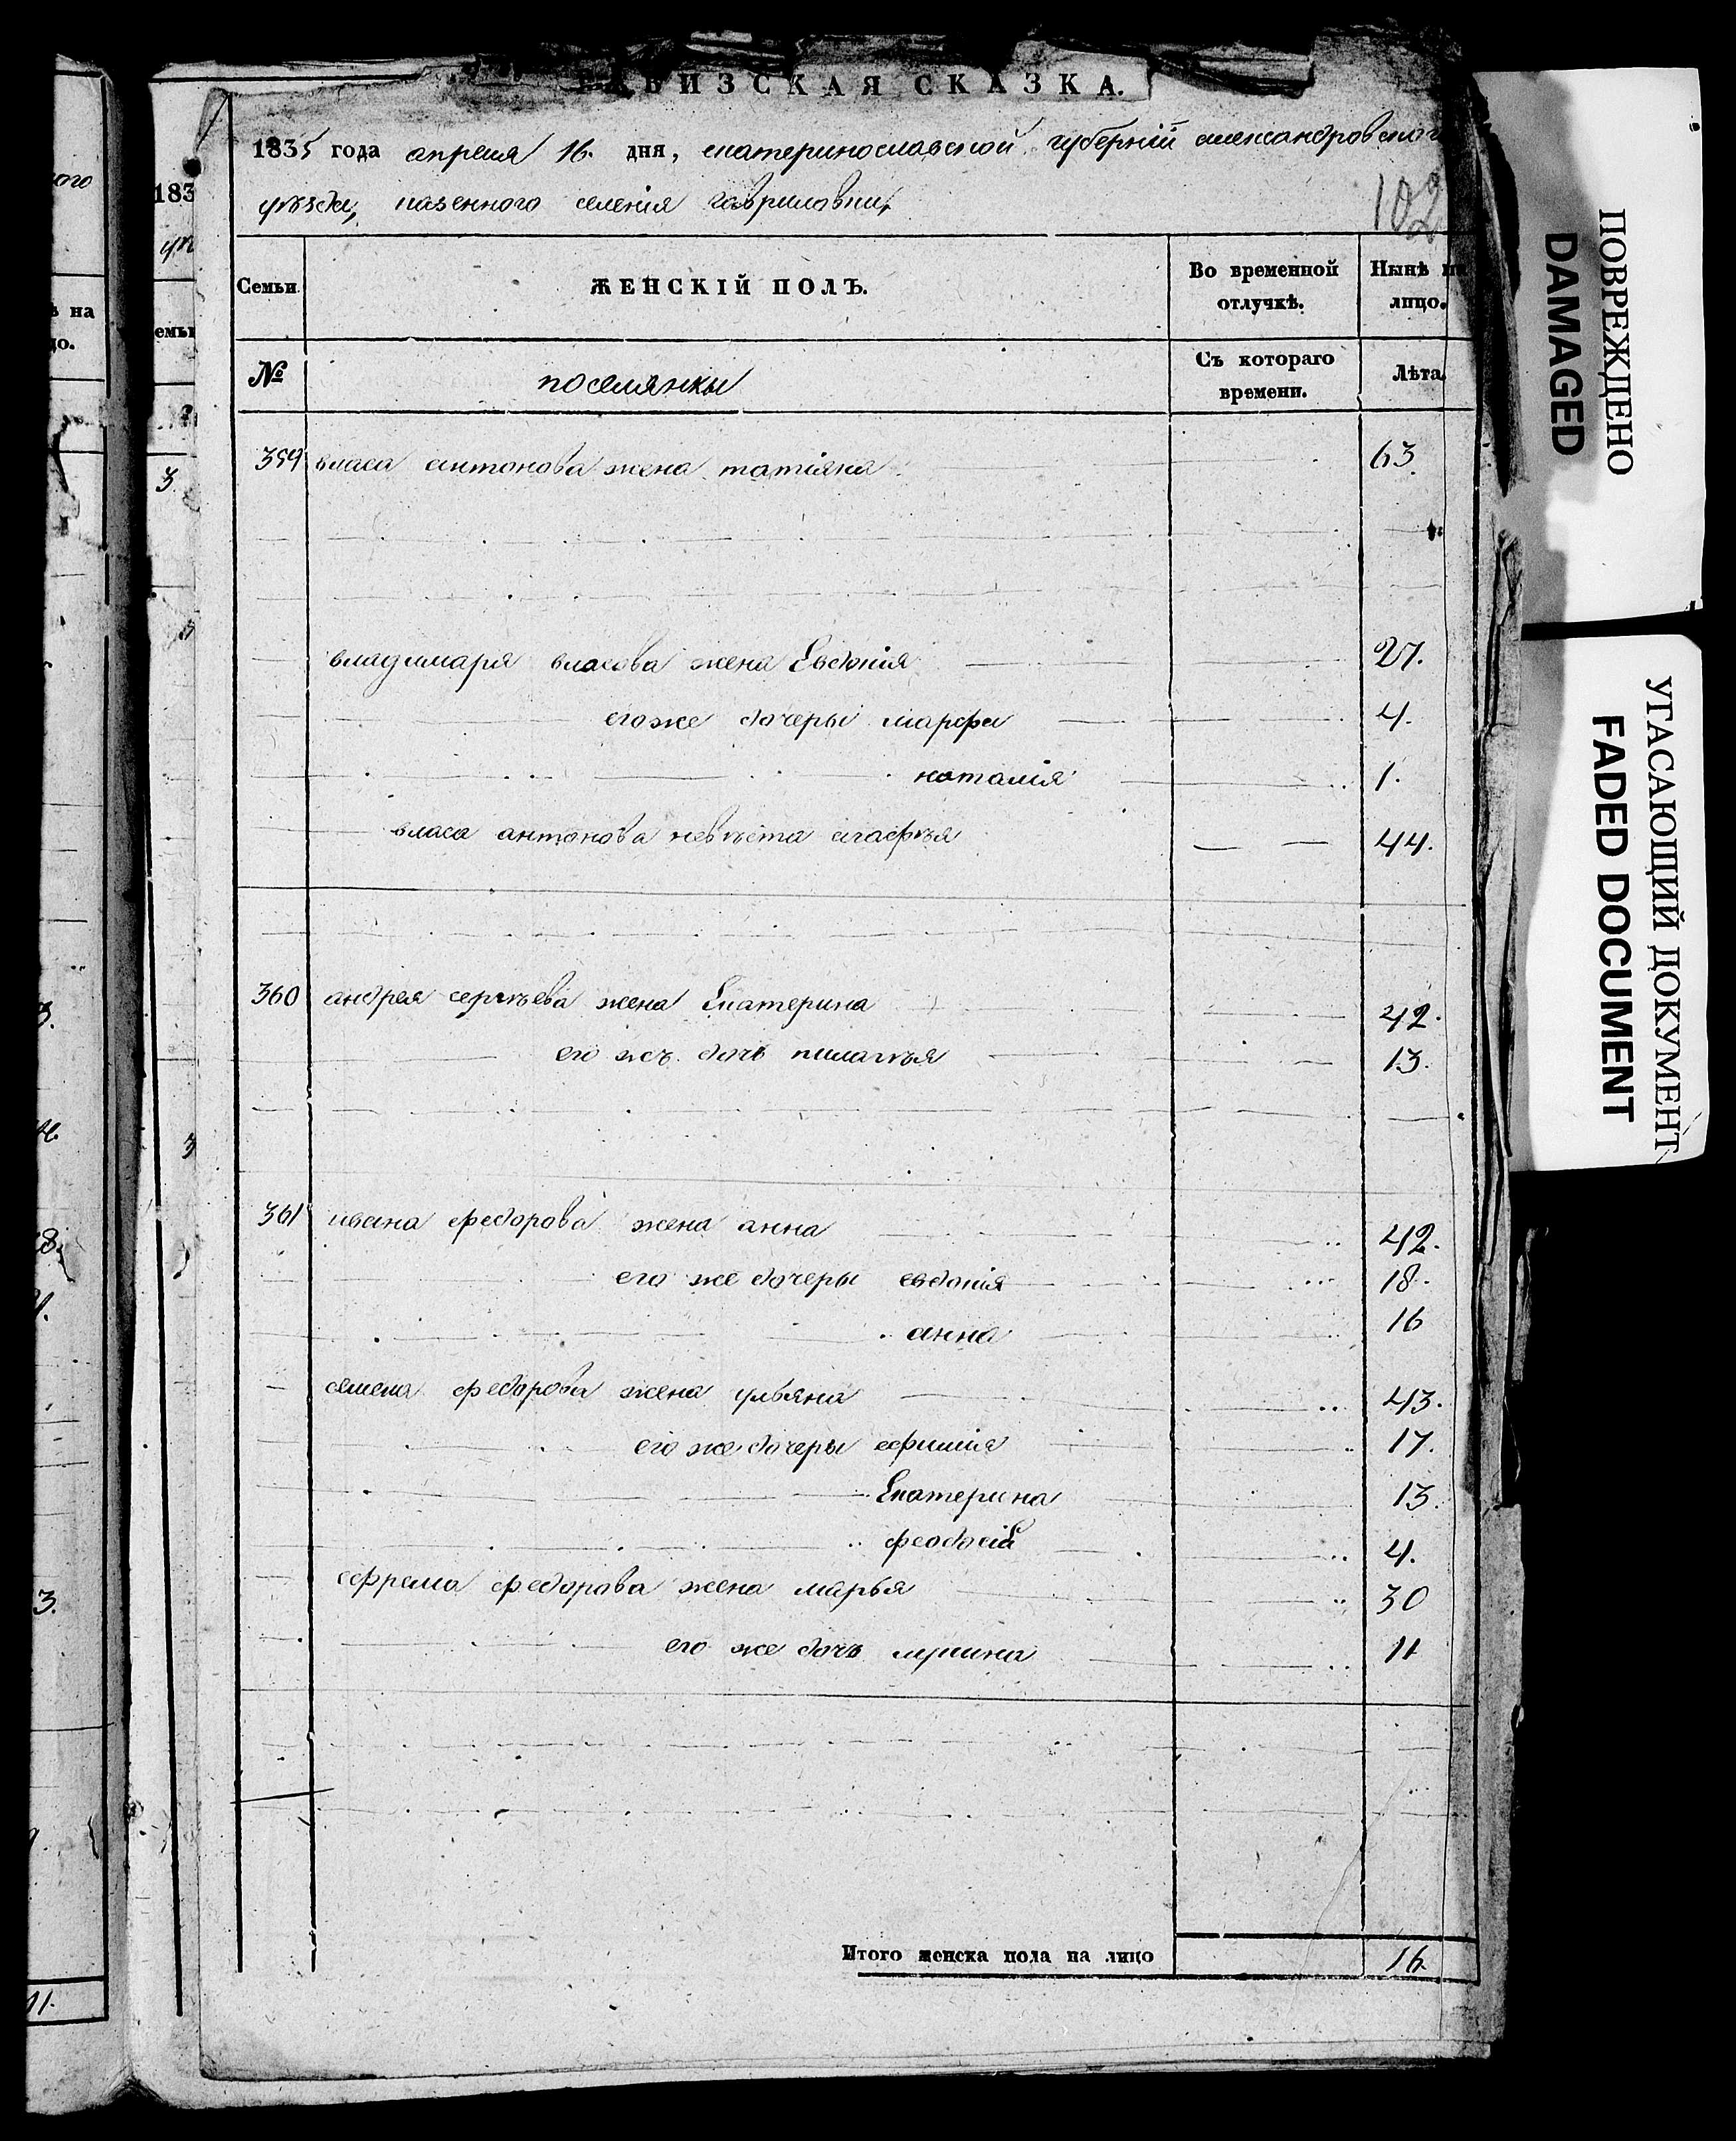 РЕВИЗСКАЯ СКАЗКА.
1835 года апреля 16. дня, екатеринославской губерніи александровского
уѣзда, казенного селенія гавриловки,
102
Семьи. ЖЕНСКІЙ ПОЛЪ. Во временной отлучкѣ. Нынѣ на лицо.
№ поселянки Съ котораго времени. Лѣта.
359 власа антонова жена татіяна 63.
владимера власова жена Евдокія 27.
егоже дочеры марфа 4.
наталія 1.
власа антонова невѣста агафѣя 44.
360 андрея сергѣева жена Екатерина 42.
его жъ дочь пилагѣя 13.
361 ивана федорова жена анна 42.
его же дочеры евдокія 18.
анна 16
семена федорова жена ульяна 43.
его же дочеры ефимія 17.
Екатерина 13.
феодосія 4.
ефрема федорова жена марья 30
его же дочь ирина 11
Итого женска пола на лицо 16.
ПОВРЕЖДЕНО
DAMAGED
УГАСАЮЩИЙ ДОКУМЕНТ
FADED DOCUMENT
183
на
11.